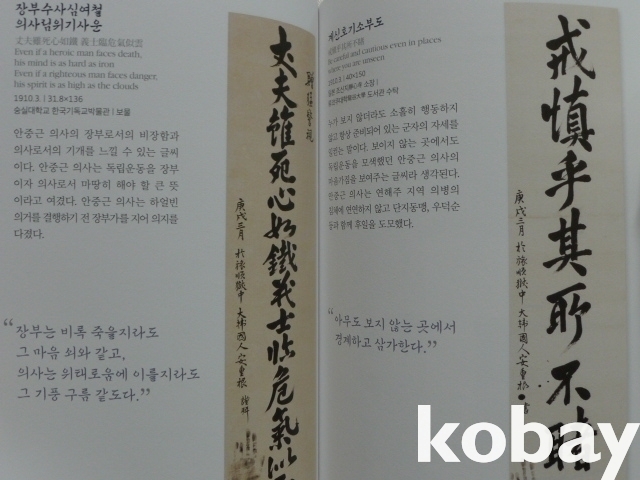 장부수사심여철
의사님위기사운
丈夫雖死心如鐵 義士臨危氣似雲
Even if a heroic man faces death,
his mind is as hard as iron
Even if a righteous man faces danger,
his spirit is as high as the clouds
1910.3. | 31.8×136
숭실대학교 한국기독교박물관 | 보물
안중근 의사의 장부로서의 비장함과
의사로서의 기개를 느낄 수 있는 글씨
이다. 안중근 의사는 독립운동을 장부
이자 의사로서 마땅히 해야 할 큰 뜻
이라고 여겼다. 안중근 의사는 하얼빈
의거를 결행하기 전 장부가를 지어 의지를
다졌다.
“장부는 비록 죽을지라도
그 마음 쇠와 같고,
의사는 위태로움에 이를지라도
그 기풍 구름 같도다.”
丈夫雖死心如鐵義士臨危氣似
庚戌三月 於旅順獄中 大韓國人安重根 謹拜
계신호기소부도
Be careful and cautious even in places
where you are unseen
1910.3. | 40×150
누가 보지 않더라도 소홀히 행동하지
않고 항상 준비되어 있는 군자의 자세를
일컫는 말이다. 보이지 않는 곳에서도
독립운동을 모색했던 안중근 의사의
마음가짐을 보여주는 글씨라 생각된다.
안중근 의사는 연해주 지역 의병의
침체에 연연하지 않고 단지동맹, 우덕순
등과 함께 후일을 도모했다.
“아무도 보지 않는 곳에서
경계하고 삼가한다.”
戒慎乎其所不睹
庚戌三月 於旅順獄中 大韓國人安重根 書
kobay